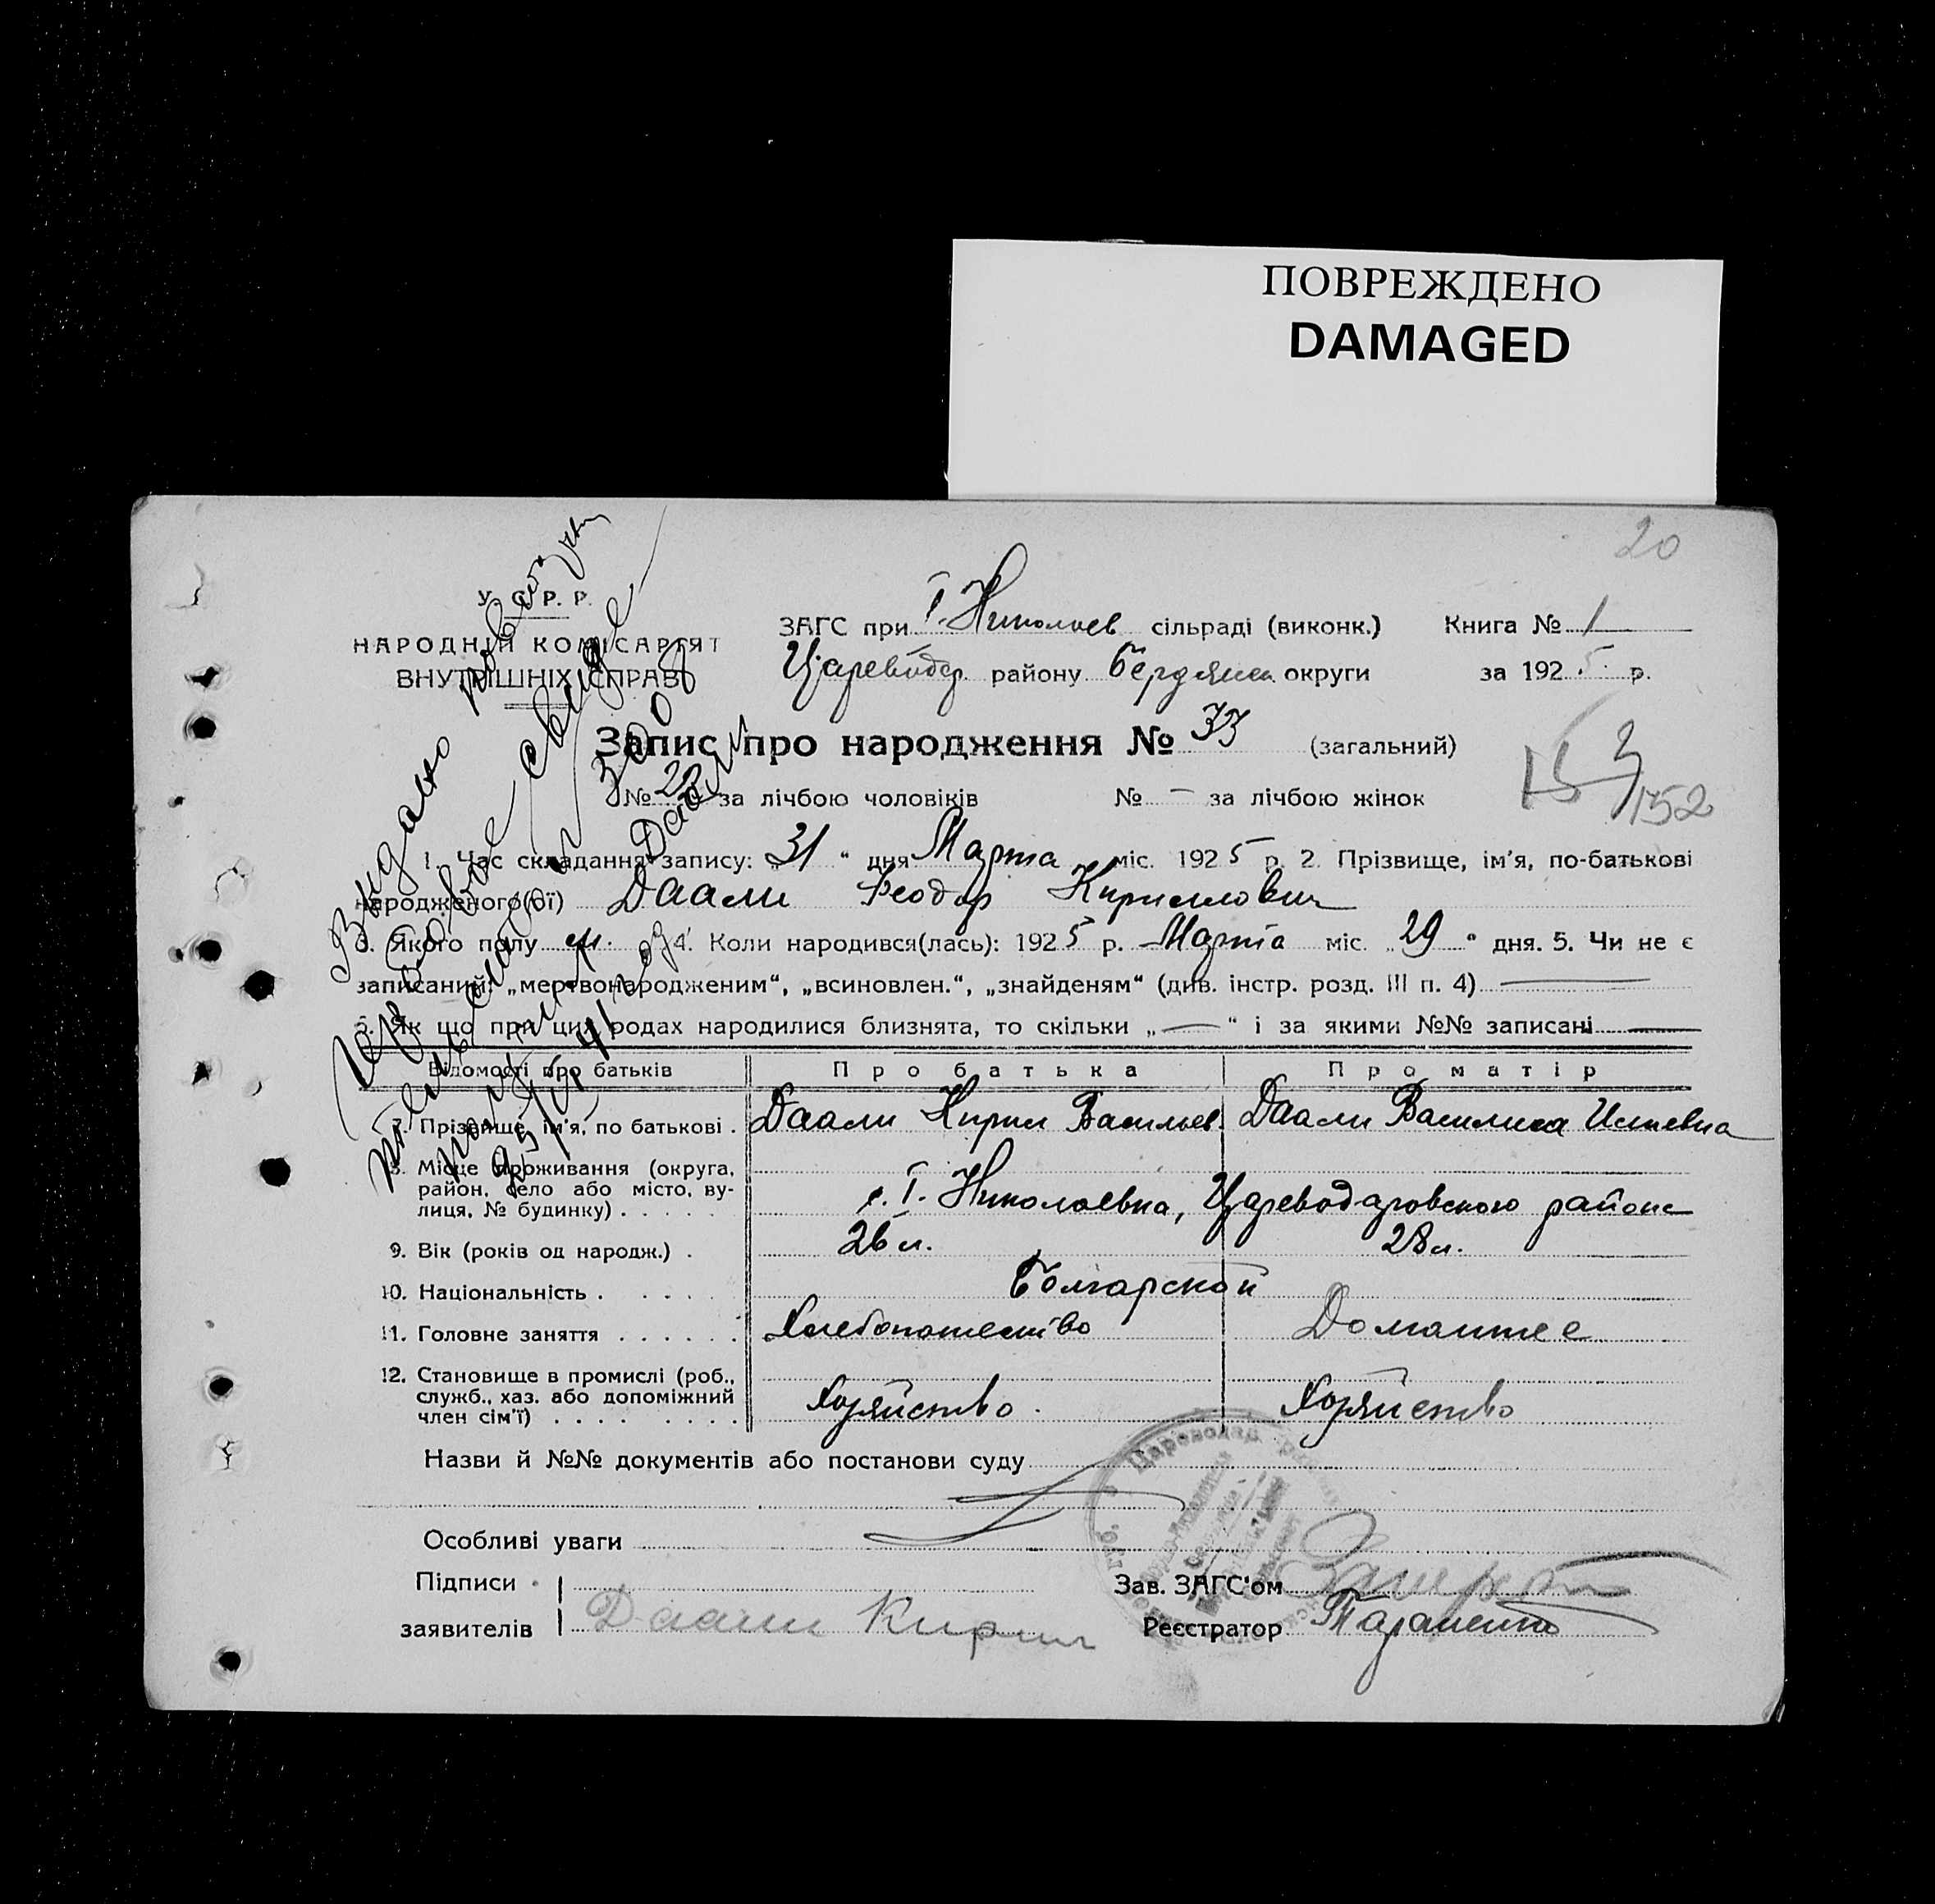 ПОВРЕЖДЕНО
DAMAGED
20
У. С. Р. Р.
НАРОДНІЙ КОМІСАРІЯТ
ВНУТРІШНІХ СПРАВ
ЗАГС при І. Николаев сільраді (виконк.) Книга № 1
Цареводар. району Бердянск. округи за 1925 р.
Запис про народження № 33 (загальний)
№ 20 за лічбою чоловіків № — за лічбою жінок
152
1. Час складання запису: „31“ дня Марта міс. 1925 р. 2. Прізвище, ім'я, по-батькові
народженого(ої) Даали Феодор Кириллович
3. Якого полу м. 4. Коли народився(лась): 1925 р. Марта міс. „29“ дня. 5. Чи не є
записаний: „мертвонародженим“, „всиновлен.“, „знайденям“ (див. інстр. розд. III п. 4) —
6. Як що при цих родах народилися близнята, то скільки „—“ і за якими №№ записані —
Відомості про батьків Про батька Про матір
7. Прізвище, ім'я, по батькові . Даали Кирил Васильев. Даали Василиса
8. Місце проживання (округа,
район, село або місто, ву-
лиця, № будинку) . . . . . с. І. Николаевка, Цареводаровского района
9. Вік (років од народж.) . 26 л. 28 л.
10. Національність . . . . . Болгарской
11. Головне заняття . . . . . . Хлебопашество Домашнее
12. Становище в промислі (роб.,
служб., хаз. або допоміжний
член сім'ї) . . . . . . . . Хозяйство . Хозяйство
Назви й №№ документів або постанови суду
Особливі уваги
Підписи
заявителів Даали Кирил
Зав. ЗАГС'ом
Реєстратор Тараненко
Видано повторне
свиде
Даали